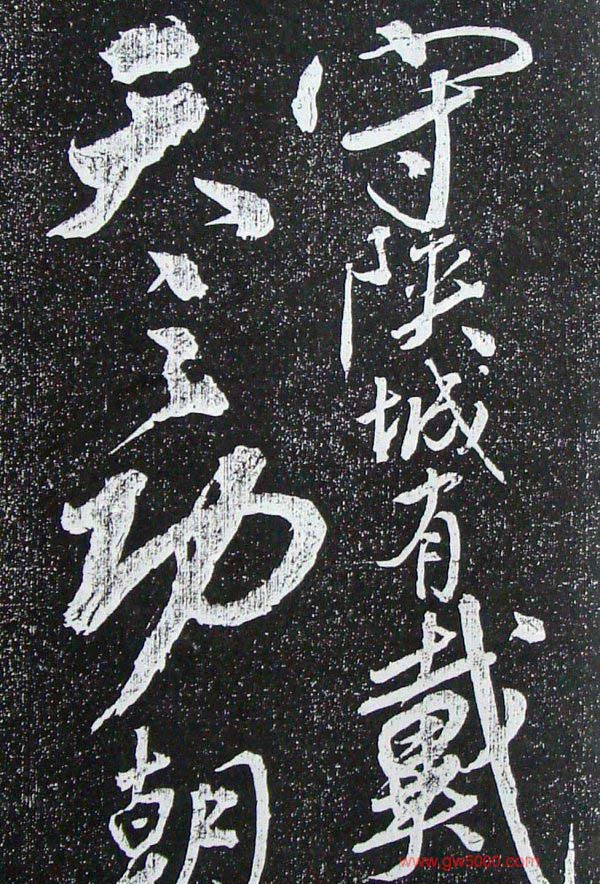 守陕城有戴
天之功朝
www.gw5000.com